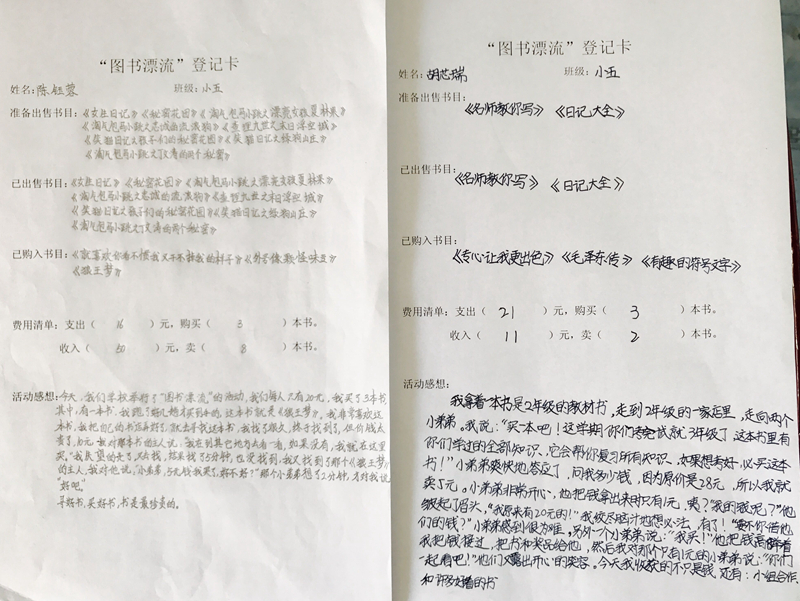 “图书漂流”登记卡
姓名：陈钰蓉 班级：小五
准备出售书目：《女生日记》《秘密花园》《淘气包马小跳之漂亮女孩夏林果》
《淘气包马小跳之忠诚的流浪狗》《查理九世之末日浮空城》
《笑猫日记之孩子们的秘密花园》《笑猫日记之绿狗山庄》
《淘气包马小跳之丁文涛的两个秘密》
已出售书目：《女生日记》《秘密花园》《淘气包马小跳之漂亮女孩夏林果》
《淘气包马小跳之忠诚的流浪狗》《查理九世之末日浮空城》
《笑猫日记之孩子们的秘密花园》《笑猫日记之绿狗山庄》
《淘气包马小跳之丁文涛的两个秘密》
已购入书目：《就喜欢你看不惯我又干不掉我的样子》《外星像颗怪味豆》
《狼王梦》
费用清单：支出（ 16 ）元，购买（ 3 ）本书。
收入（ 30 ）元，卖（ 8 ）本书。
活动感想：今天，我们学校举行了“图书漂流”的活动，我们每人只有20元，我买了3本书，
其中，有一本书，我跑了好几趟才买到手的，这本书就是《狼王梦》，我非常喜欢这
本书，我把自己的书
元，我对那本书的主人说，我在到其它地方去看一看，如果没有，我就在这里
买，”
的主人，我对他说，“小弟弟，5元钱我买了，好不好？”那个小弟弟想了2分钟，才对我说：
“好吧。”
寻好书，买好书，书是最珍贵的。
“图书漂流”登记卡
姓名：胡芯瑞 班级：小五
准备出售书目：
《名师教你写》 《日记大全》
已出售书目：
《名师教你写》 《日记大全》
已购入书目：
《专心：让我更出色》 《毛泽东传》 《有趣的符号文字》
费用清单：支出（ 21 ）元，购买（ 3 ）本书。
收入（ 11 ）元，卖（ 2 ）本书。
活动感想：
我拿着一本书是2年级的教材书，走到2年级的一家店里，走向两个
小弟弟，我说：“买一本吧！这学期你们考完试就3年级了，这本书里有
你们学过的全部知识，它会帮你复习所有知识，如果想考好，必买这本
书！”小弟弟爽快地答应了，问我多少钱，因为原价是28元，所以我就
卖5元。小弟弟非常开心，他把钱拿出来时只有1元，咦？“我的钱呢？”他
皱起了眉头，“我原来有20元的！”我绞尽脑汁地想办法，有了！“要不你借他
们的钱？”小弟弟感到很为难。另外一个小弟弟说：“我买！”他把钱高高举着
我把钱接过，把书和奖品给他，然后我对那个只有1元的小弟弟说：“你们
一起看吧！”他们又露出开心的笑容。今天我收获的不只是钱，还有：小组合作，
和许多好看的书